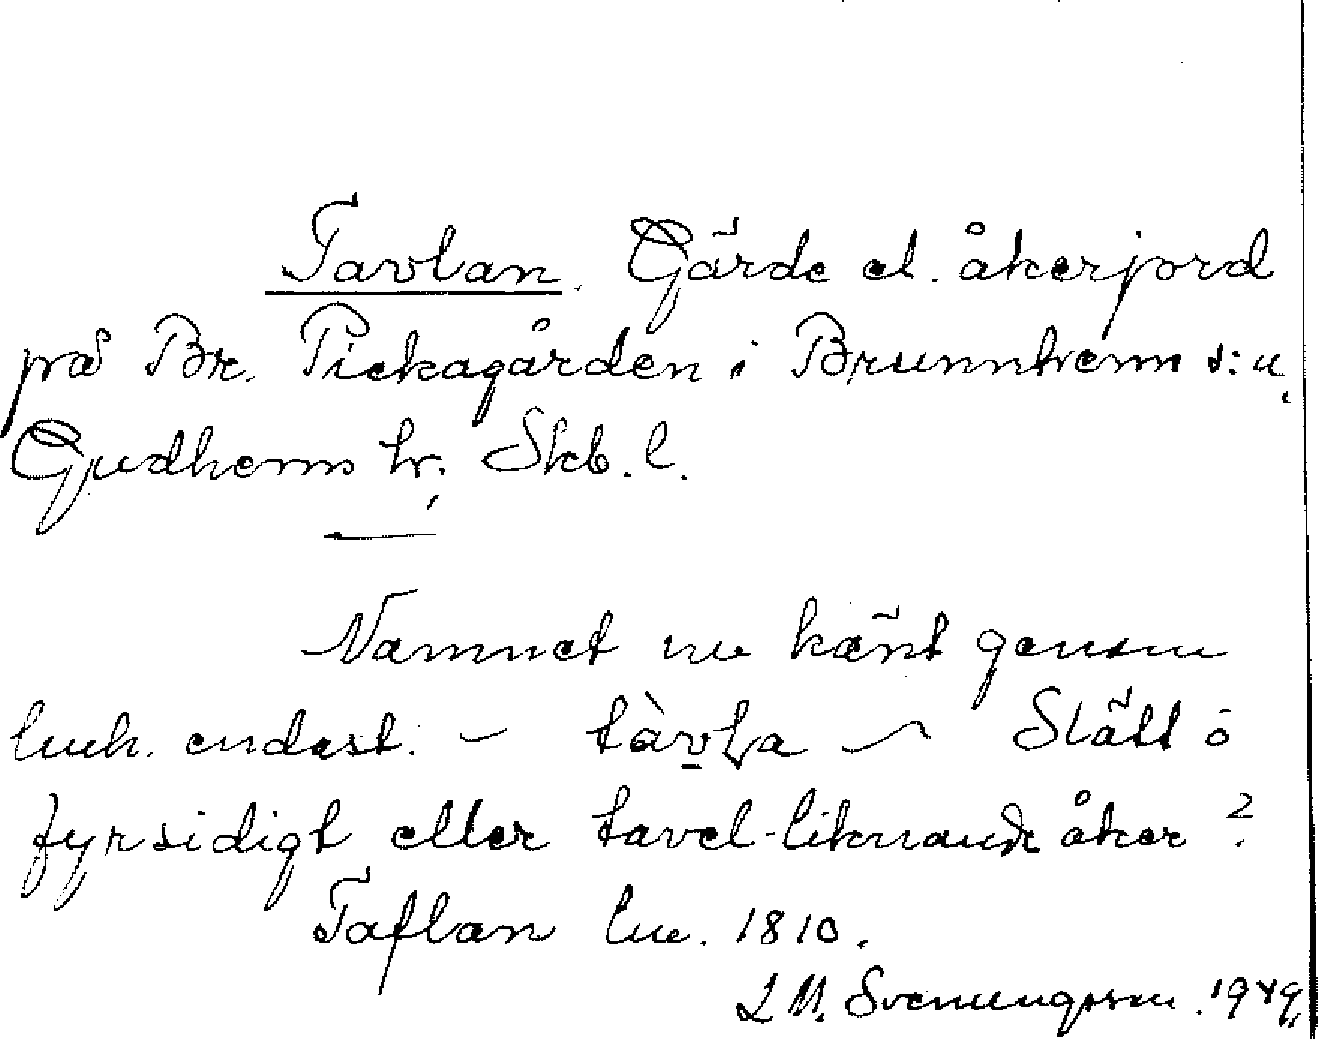 Tavlan. Gärde el. åkerjord
på Br. Pickagården i Brunnhem s:n
Gudhems hr. Skb. l.
Namnet nu känt genom
lmh. endast. – tàvḷa – Slätt o
fyrsidigt eller tavel-liknande åker?
Taflan lm. 1810.
L M. Svenungsson. 1949